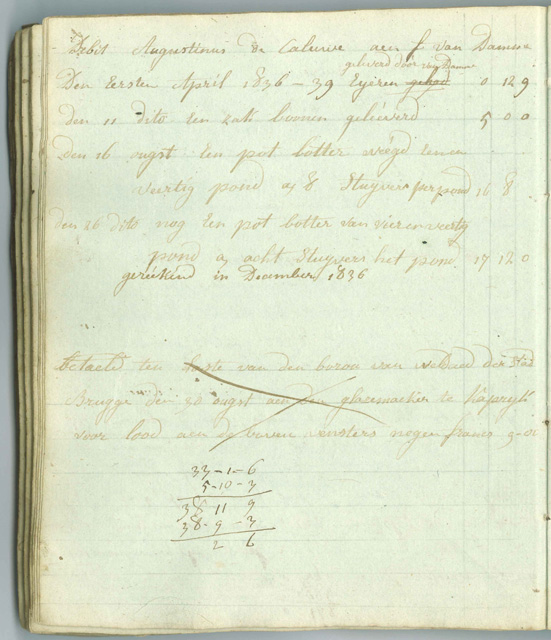 Debit Augustinus de Caluwe aen f van Damme
gelverd door van Damme
Den Eersten April 1836 - 39 Eyeren gehad 0 12 9
den 11 dito Een zak boonen geleeverd 5 0 0
den 16 ougst Een pot botter weegd Eenen
veertig pond a 8 Stuyvers per pond 16 8
den 26 dito nog Een pot botter van vierenveertig
pond a acht Stuyvers het pond 17 12 0
gerekend in December 1836
betaeld ten laste van den baron van der Stad
Brugge den 30 ougst aen den glaesmaeker te Kapryk
voor lood aen de boven vensters negen francs 9-0
33-1-6
5-10-3
38 11 9
38-9-3
2 6